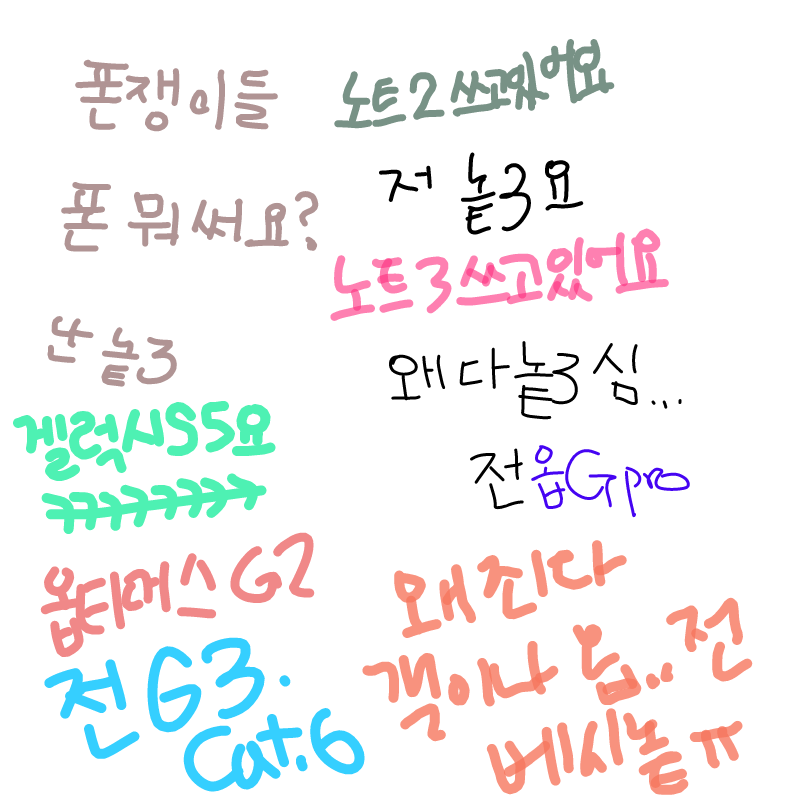 폰쟁이들
폰 뭐써요?
난 놑3
노트2 쓰고있어요
저 놑3요
노트3쓰고있어요
왜 다 놑3 심...
전 옵Gpro
겔럭시S5요
ㅋㅋㅋㅋㅋㅋㅋ
옵티머스 G2
전 G3.
Cat.6
왜 죄다
갤이나 옵.. 전
베시놑ㅠ